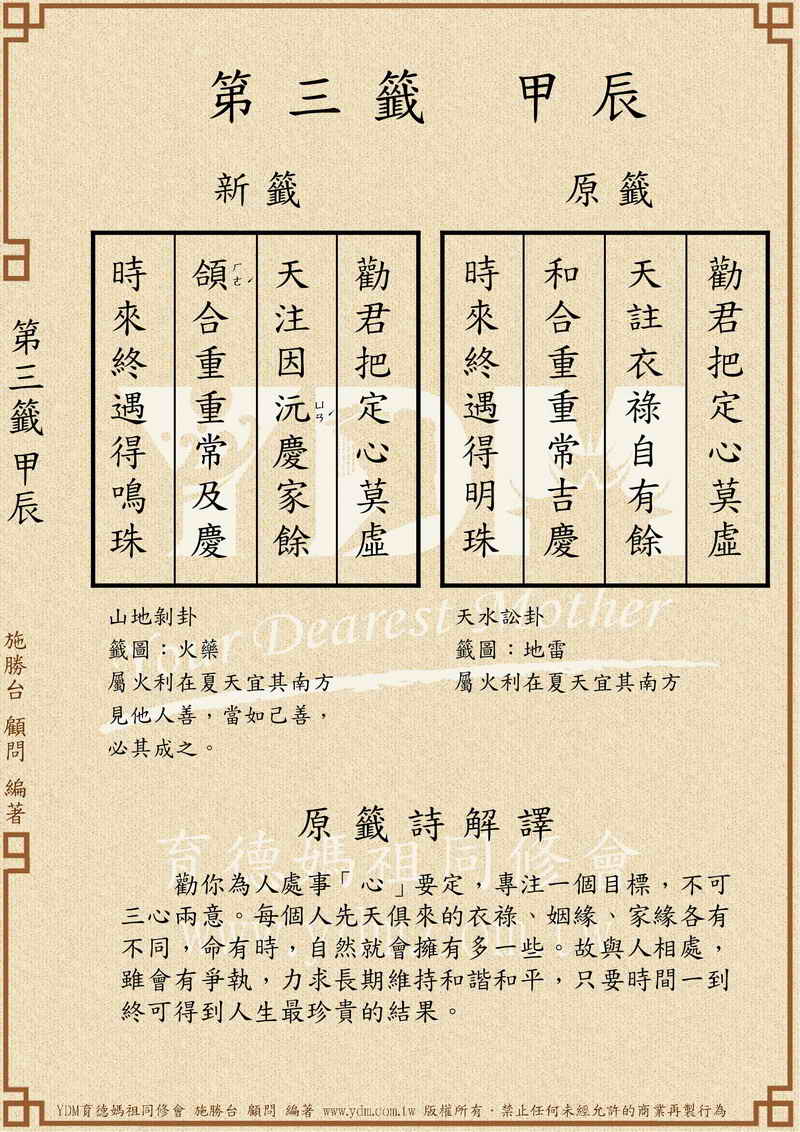 第三籤 甲辰
原籤
勸君把定心莫虛
天註衣祿自有餘
和合重重常吉慶
時來終遇得明珠
天水訟卦
籤圖：地雷
屬火利在夏天宜其南方
新籤
勸君把定心莫虛
天注因沅ㄩㄢˊ慶家餘
頜ㄏㄜˊ合重重常及慶
時來終遇得鳴珠
山地剝卦
籤圖：火藥
屬火利在夏天宜其南方
見他人善，當如己善，
必其成之。
原籤詩解譯
勸你為人處事「心」要定，專注一個目標，不可
三心兩意。每個人先天俱來的衣祿、姻緣、家緣各有
不同，命有時，自然就會擁有多一些。故與人相處，
雖會有爭執，力求長期維持和諧和平，只要時間一到
終可得到人生最珍貴的結果。
第三籤 甲辰
施勝台 顧問 編著
YDM
Your Dearest Mother
育德媽祖同修會
YDM育德媽祖同修會 施勝台 顧問 編著 www.ydm.com.tw 版權所有．禁止任何未經允許的商業再製行為